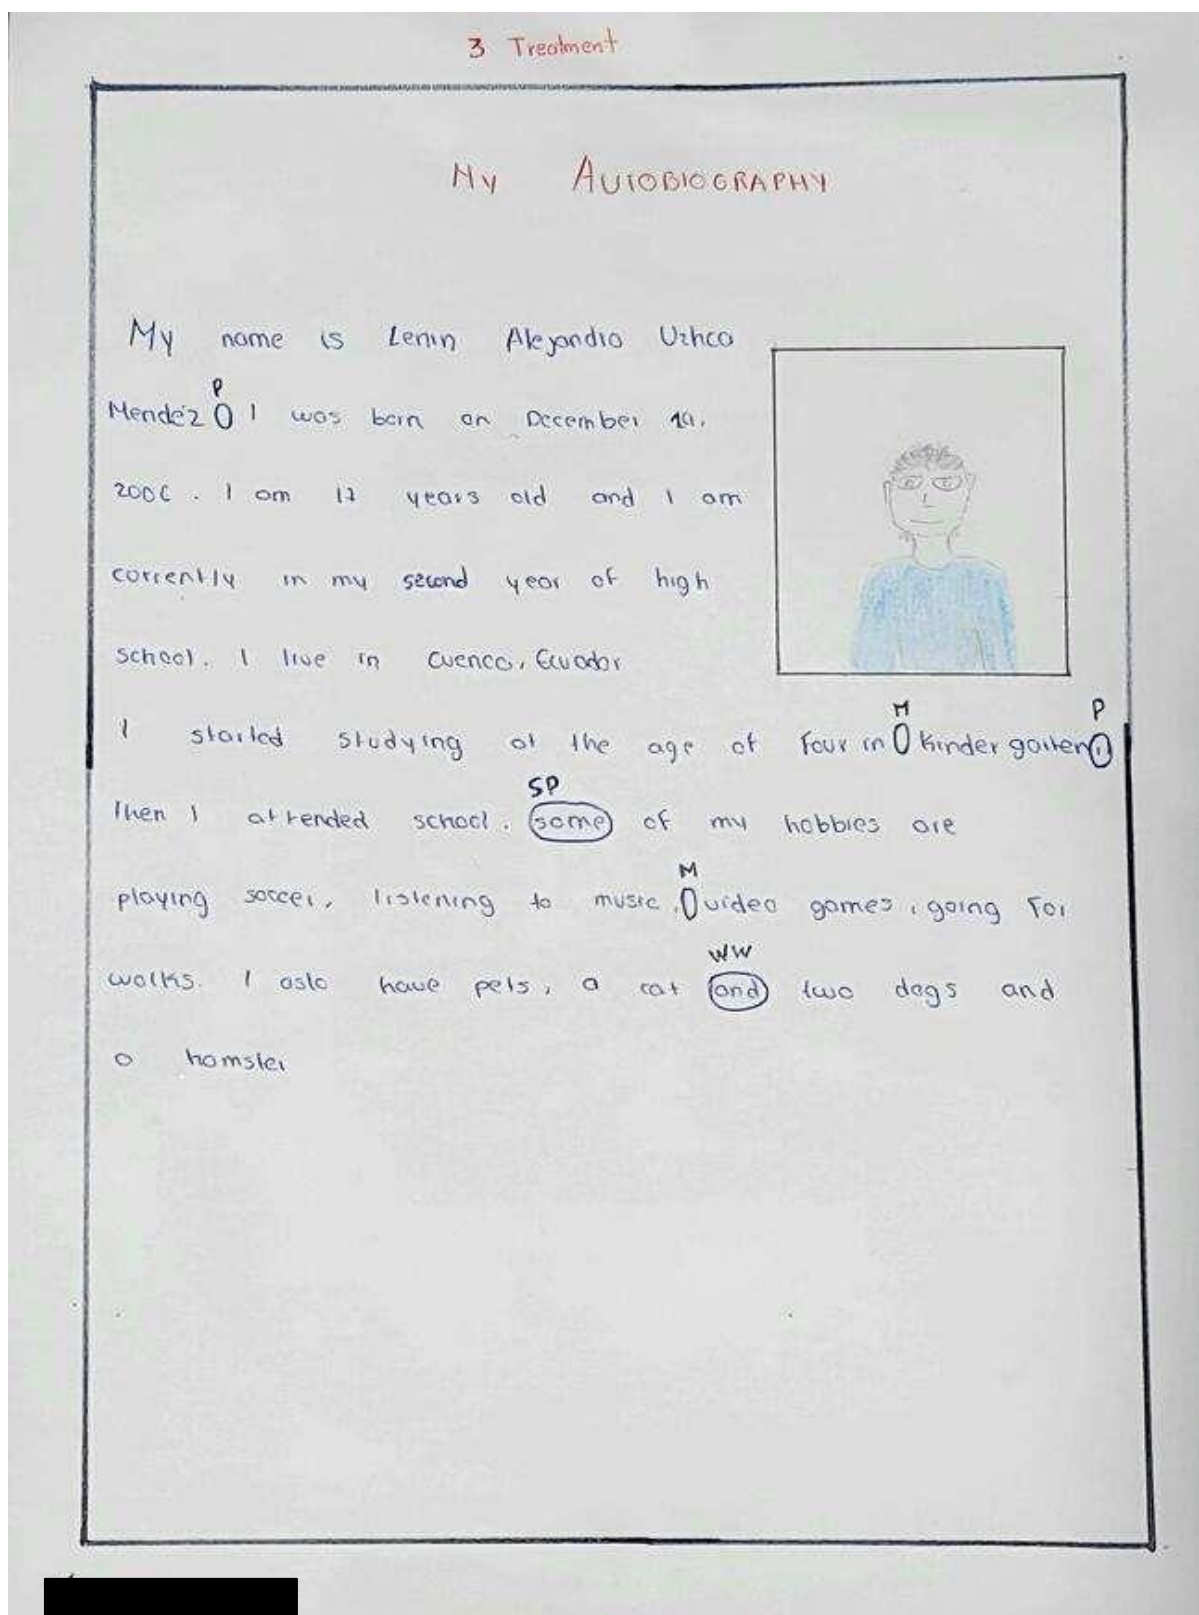 3 Treatment
My AUTOBIOGRAPHY
My name is Lenin Alejandro Uzhca
P
Mendéz I was born on December 19,
2006. I am 17 years old and I am
correntlly in my second year of high
school. I live in Cuenca, Ecuador
M P
I started studying at the age of four in kindergarten,
SP
then I attended school. some of my hobbies are
M
playing soccer, listening to music, video games, going for
WW
walks. I aslo have pets, a cat and two dogs and
a hamster